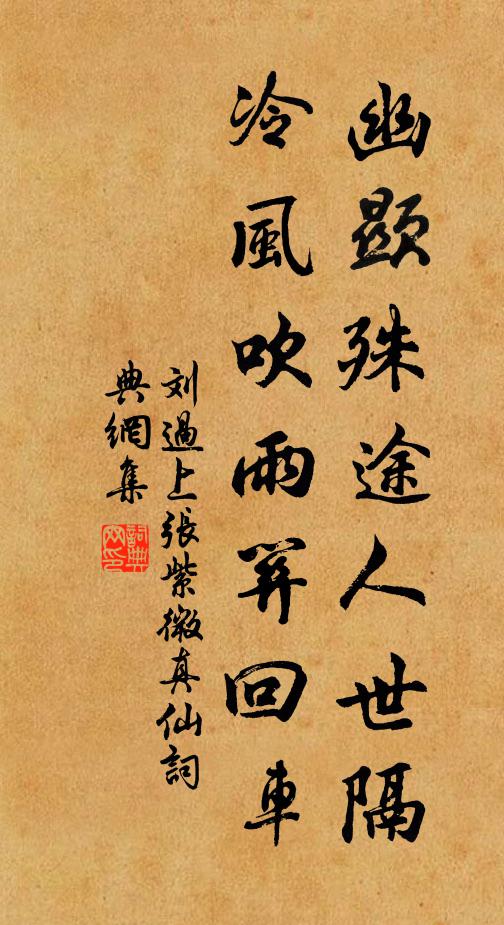 幽顯殊途人世隔
冷風吹雨羿回車
刘過上張紫微真仙詞
典網集
詞典網印